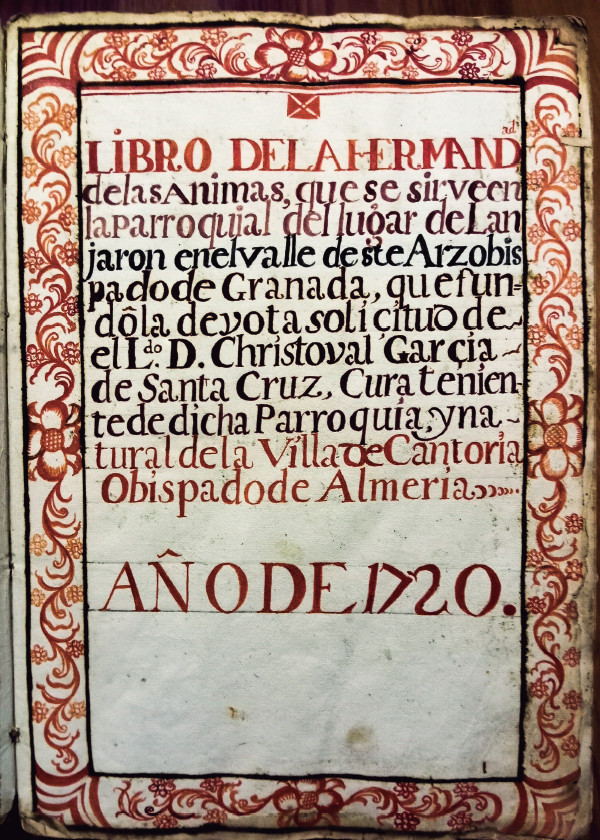 LIBRO DE LA HERMAND.ad
de las Animas, que se sirve en
la parroquial del lugar de Lan
jaron en el valle de ste Arzobis
pado de Granada, que fun=
dô la devota soliçitud de
el L.do D. Christoval Garçia
de Santa Cruz, Cura tenien-
te de dicha Parroquia, y na-
tural de la Villa de Cantoria
Obispado de Almeria
AÑO DE 1720.